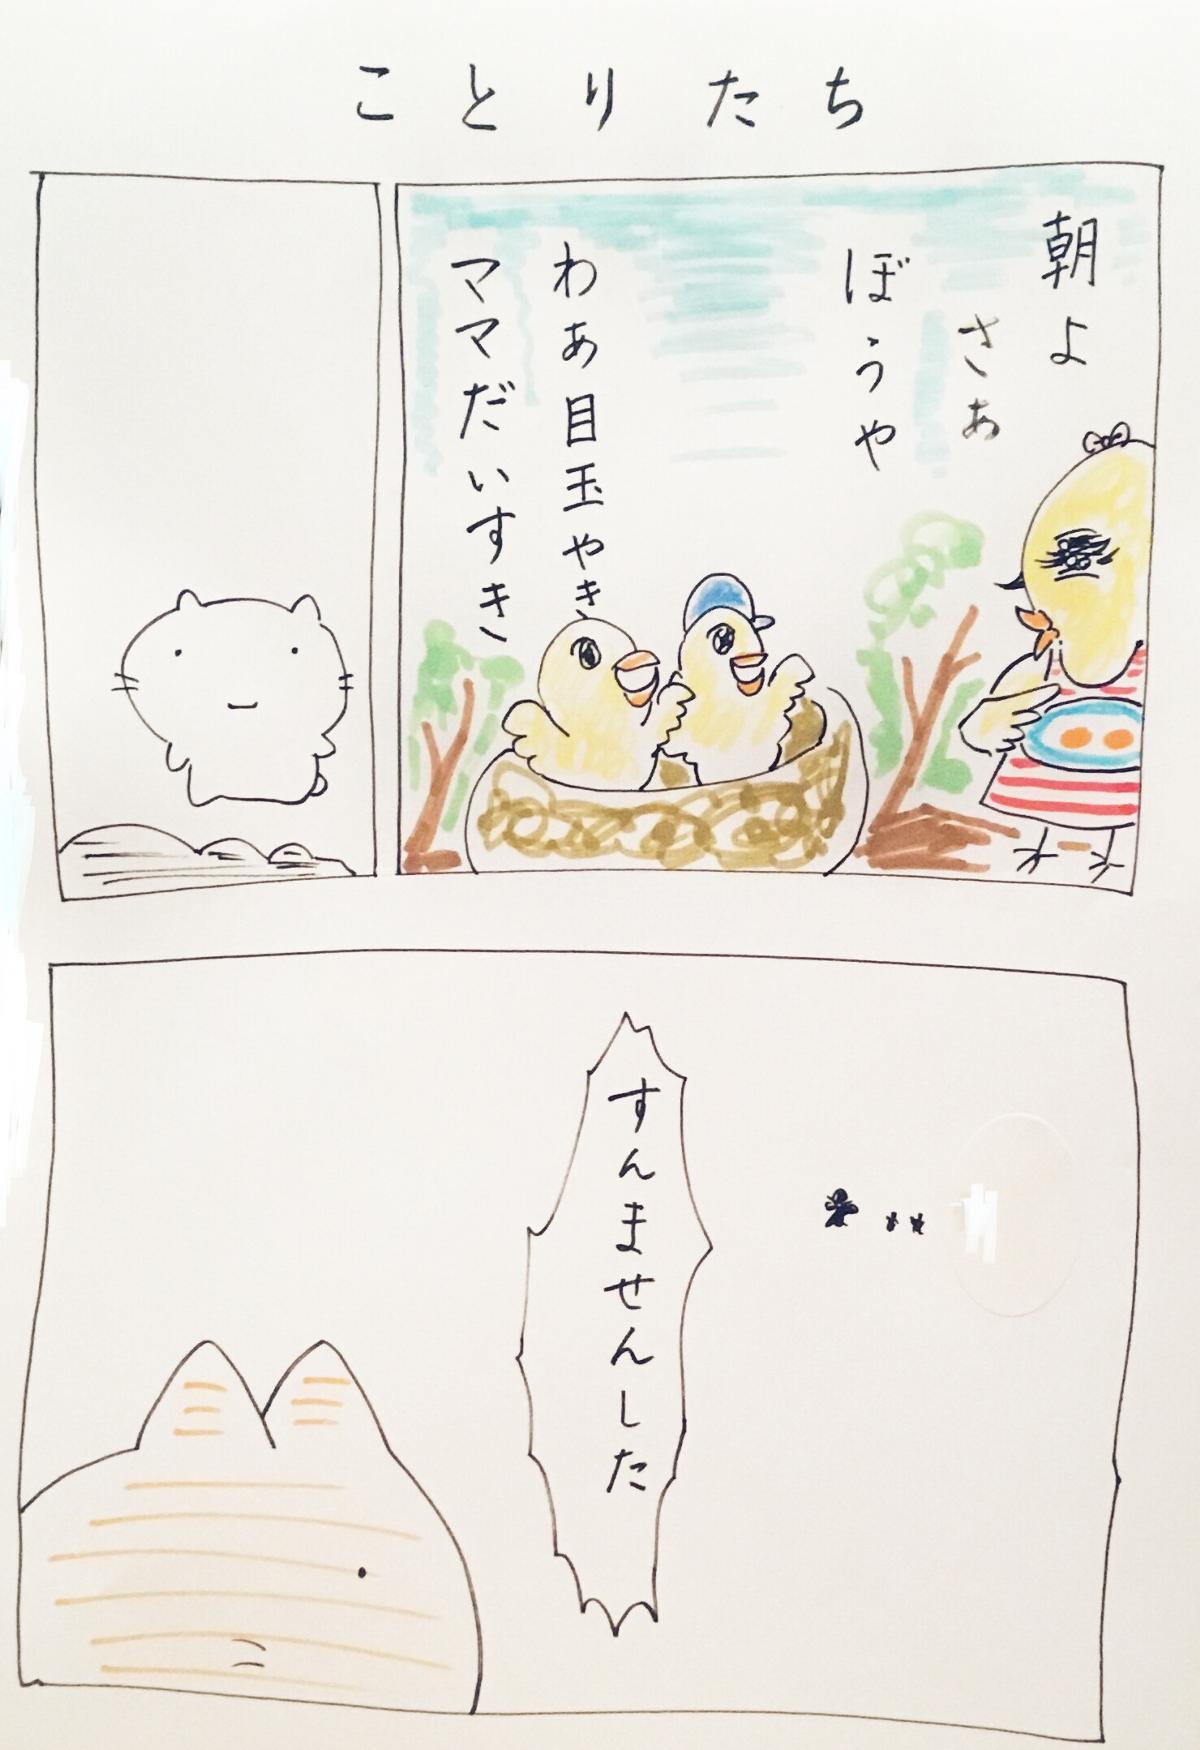 ことりたち
朝よ
さぁ
ぼうや
わぁ目玉やき
ママだいすき
すんませんした